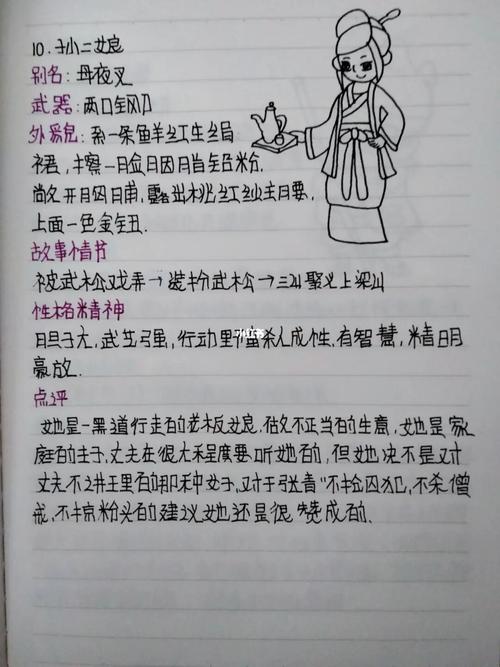 10. 孙二娘
别名: 母夜叉
武器: 两口钢刀
外貌: 系一条鲜红生绢
裙, 搽一脸胭脂铅粉,
敞开胸脯, 露出桃红纱主腰,
上面一色金钮.
故事情节
被武松戏弄→装扮武松→三山聚义上梁山
性格精神
胆子大, 武艺强, 行动野蛮杀人成性, 有智慧, 精明
豪放.
点评
她是一黑道行走的老板娘. 做不正当的生意, 她是家
庭的主子, 丈夫在很大程度要听她的, 但她决不是对
丈夫不讲理的那种女子, 对于张青“不捡囚犯, 不杀僧
戒, 不掠粉头的建议她还是很赞成的.
小红书